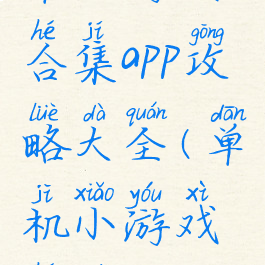 hé jí gōng
合集app攻
lüè dà quán dān
略大全(单
jī xiǎo yóu xì
机小游戏